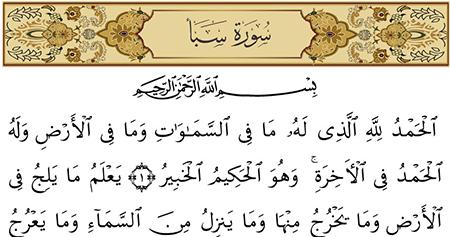 سُورَةُ سَبَأ
بِسْمِ اللَّهِ الرَّحْمَٰنِ الرَّحِيمِ
الْحَمْدُ لِلَّهِ الَّذِى لَهُۥ مَا فِى السَّمَٰوَٰتِ وَمَا فِى الْأَرْضِ وَلَهُ
الْحَمْدُ فِى الْأٓخِرَةِ ۚ وَهُوَ الْحَكِيمُ الْخَبِيرُ ﴿١﴾ يَعْلَمُ مَا يَلِجُ فِى
الْأَرْضِ وَمَا يَخْرُجُ مِنْهَا وَمَا يَنزِلُ مِنَ السَّمَآءِ وَمَا يَعْرُجُ